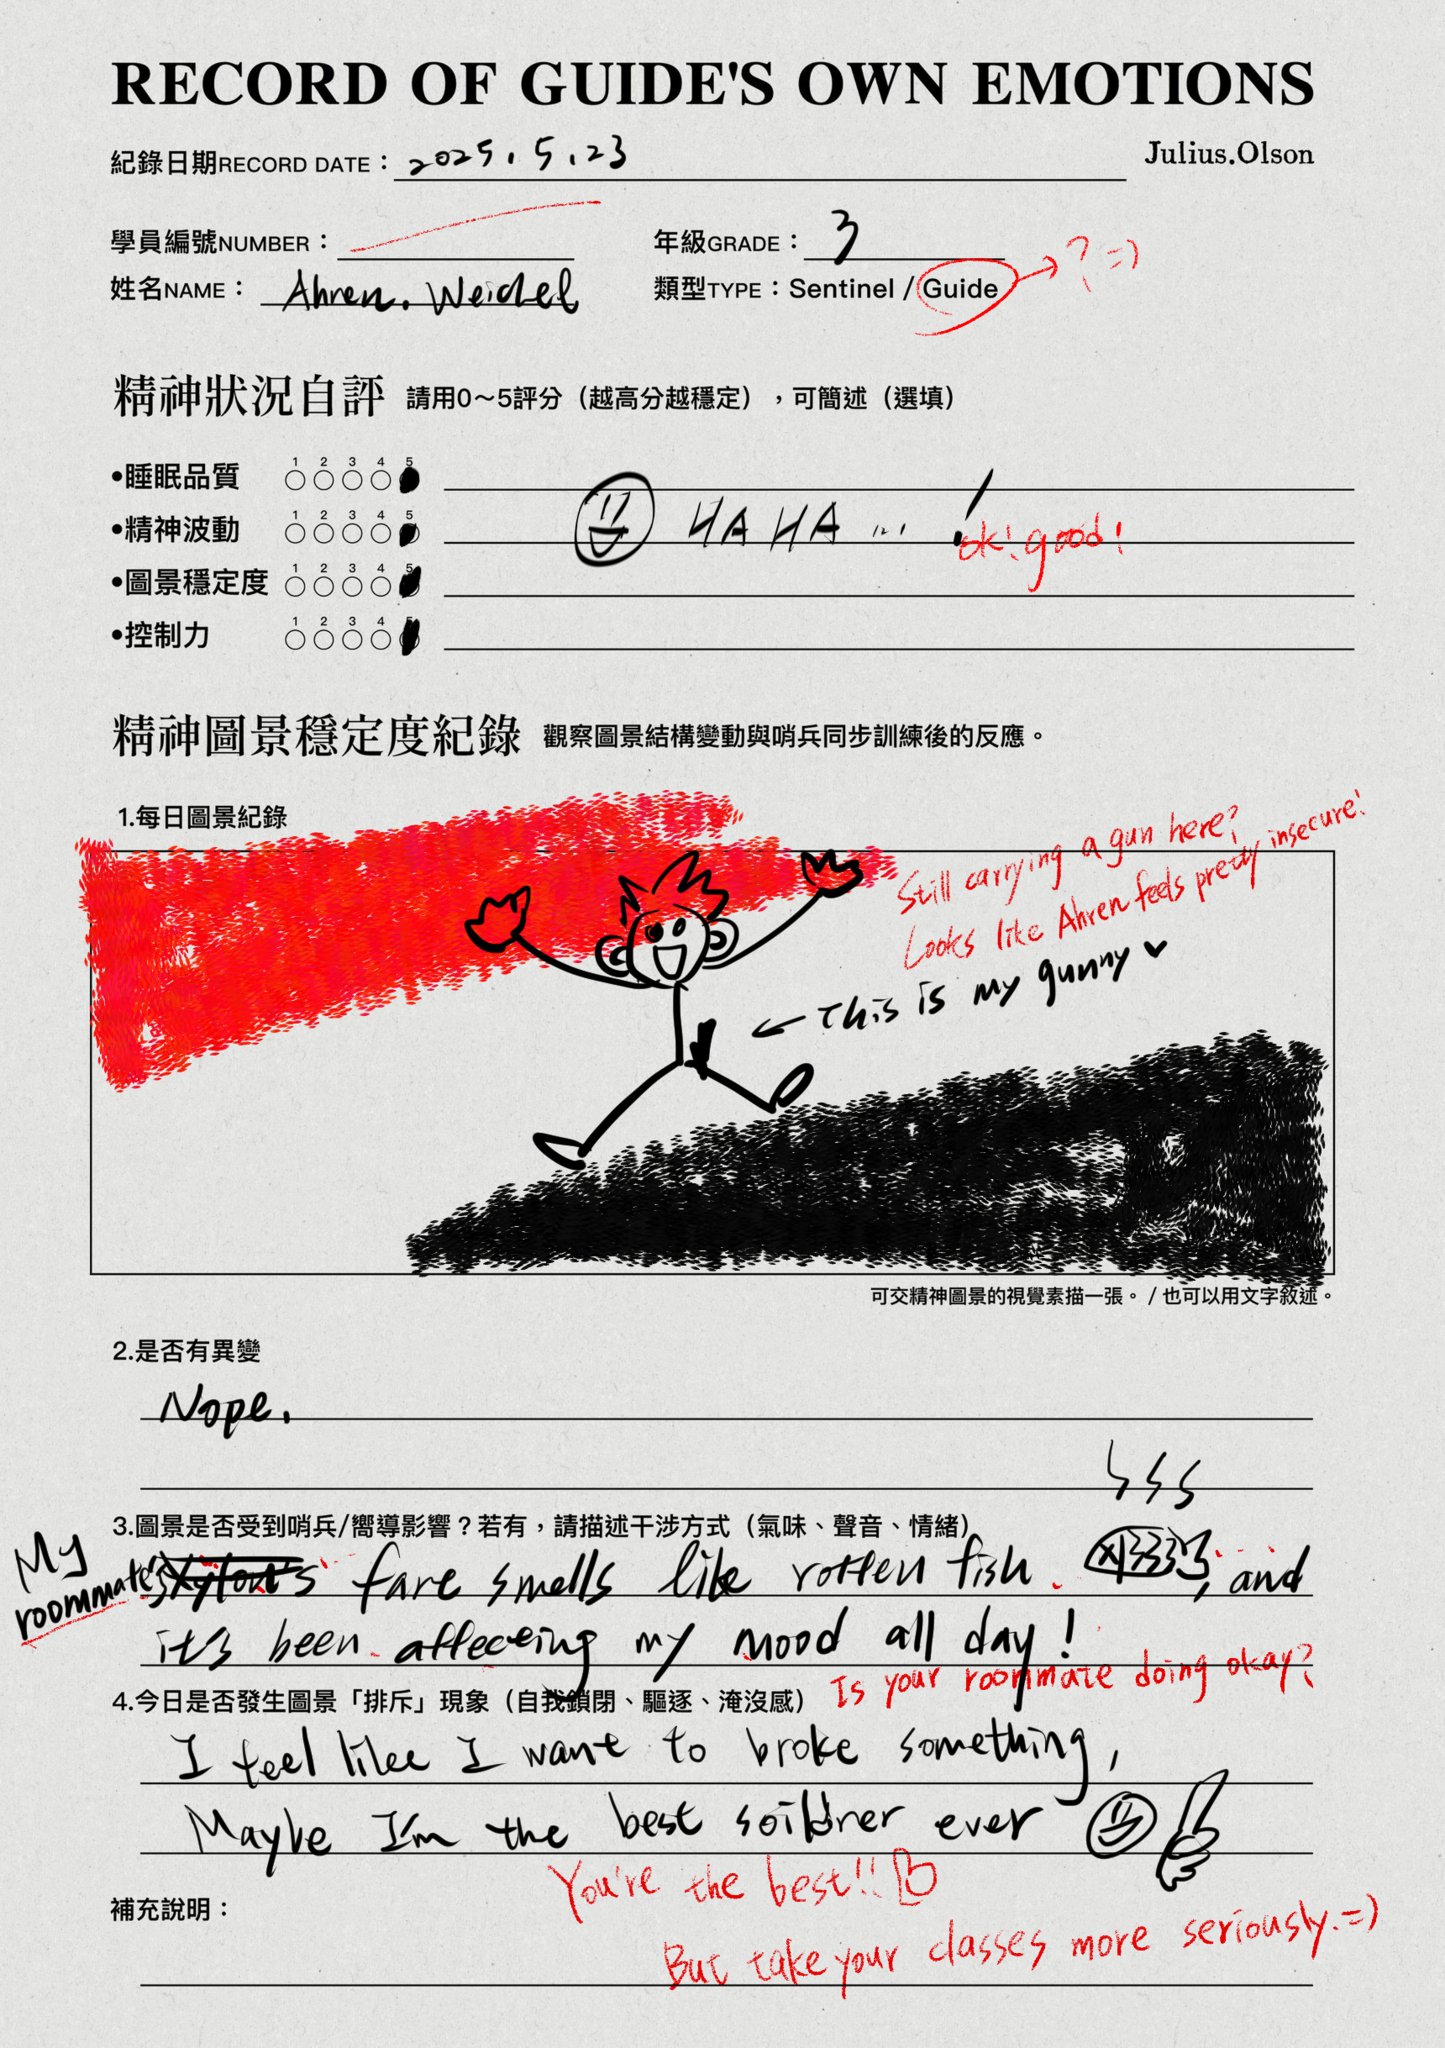 RECORD OF GUIDE'S OWN EMOTIONS
紀錄日期RECORD DATE： 2025.5.23
Julius.Olson
學員編號NUMBER：
年級GRADE： 3
姓名NAME： Ahren. Weidel
類型TYPE：Sentinel / Guide ? =)
精神狀況自評 請用0～5評分（越高分越穩定），可簡述（選填）
•睡眠品質 1 2 3 4 5
•精神波動 1 2 3 4 5
HA HA ... !
ok! good!
•圖景穩定度 1 2 3 4 5
•控制力 1 2 3 4 5
精神圖景穩定度紀錄 觀察圖景結構變動與哨兵同步訓練後的反應。
1.每日圖景紀錄
Still carrying a gun here?
Looks like Ahren feels pretty insecure!
← This is my gunny ♥
可交精神圖景的視覺素描一張。 / 也可以用文字敘述。
2.是否有異變
Nope.
3.圖景是否受到哨兵/嚮導影響？若有，請描述干涉方式（氣味、聲音、情緒）
My roommate's fare smells like rotten fish , and
it's been affeceing my mood all day!
Is your roommate doing okay?
4.今日是否發生圖景「排斥」現象（自我鎖閉、驅逐、淹沒感）
I feel like I want to broke something,
Maybe I'm the best soildner ever
You're the best!!
補充說明：
But take your classes more seriously. =)